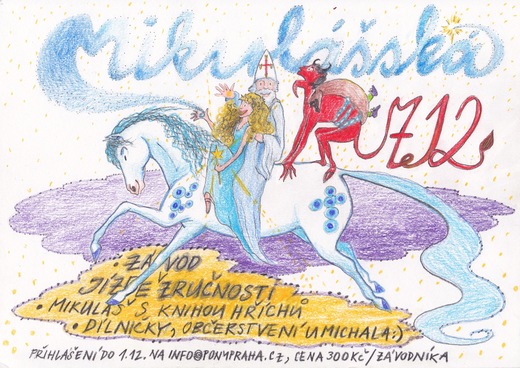 Mikulášská
7.12
• ZÁVOD
JÍZDE ZRUČNOSTI
• MIKULÁŠ S KNIHOU HŘÍCHŮ
• DÍLNICKY, OBČERSTVENÍ U MICHALA:)
PŘIHLAŠENÍ DO 1.12. NA INFO@PONYPRAHA.CZ, CENA 300KČ/ZÁVODNÍKA